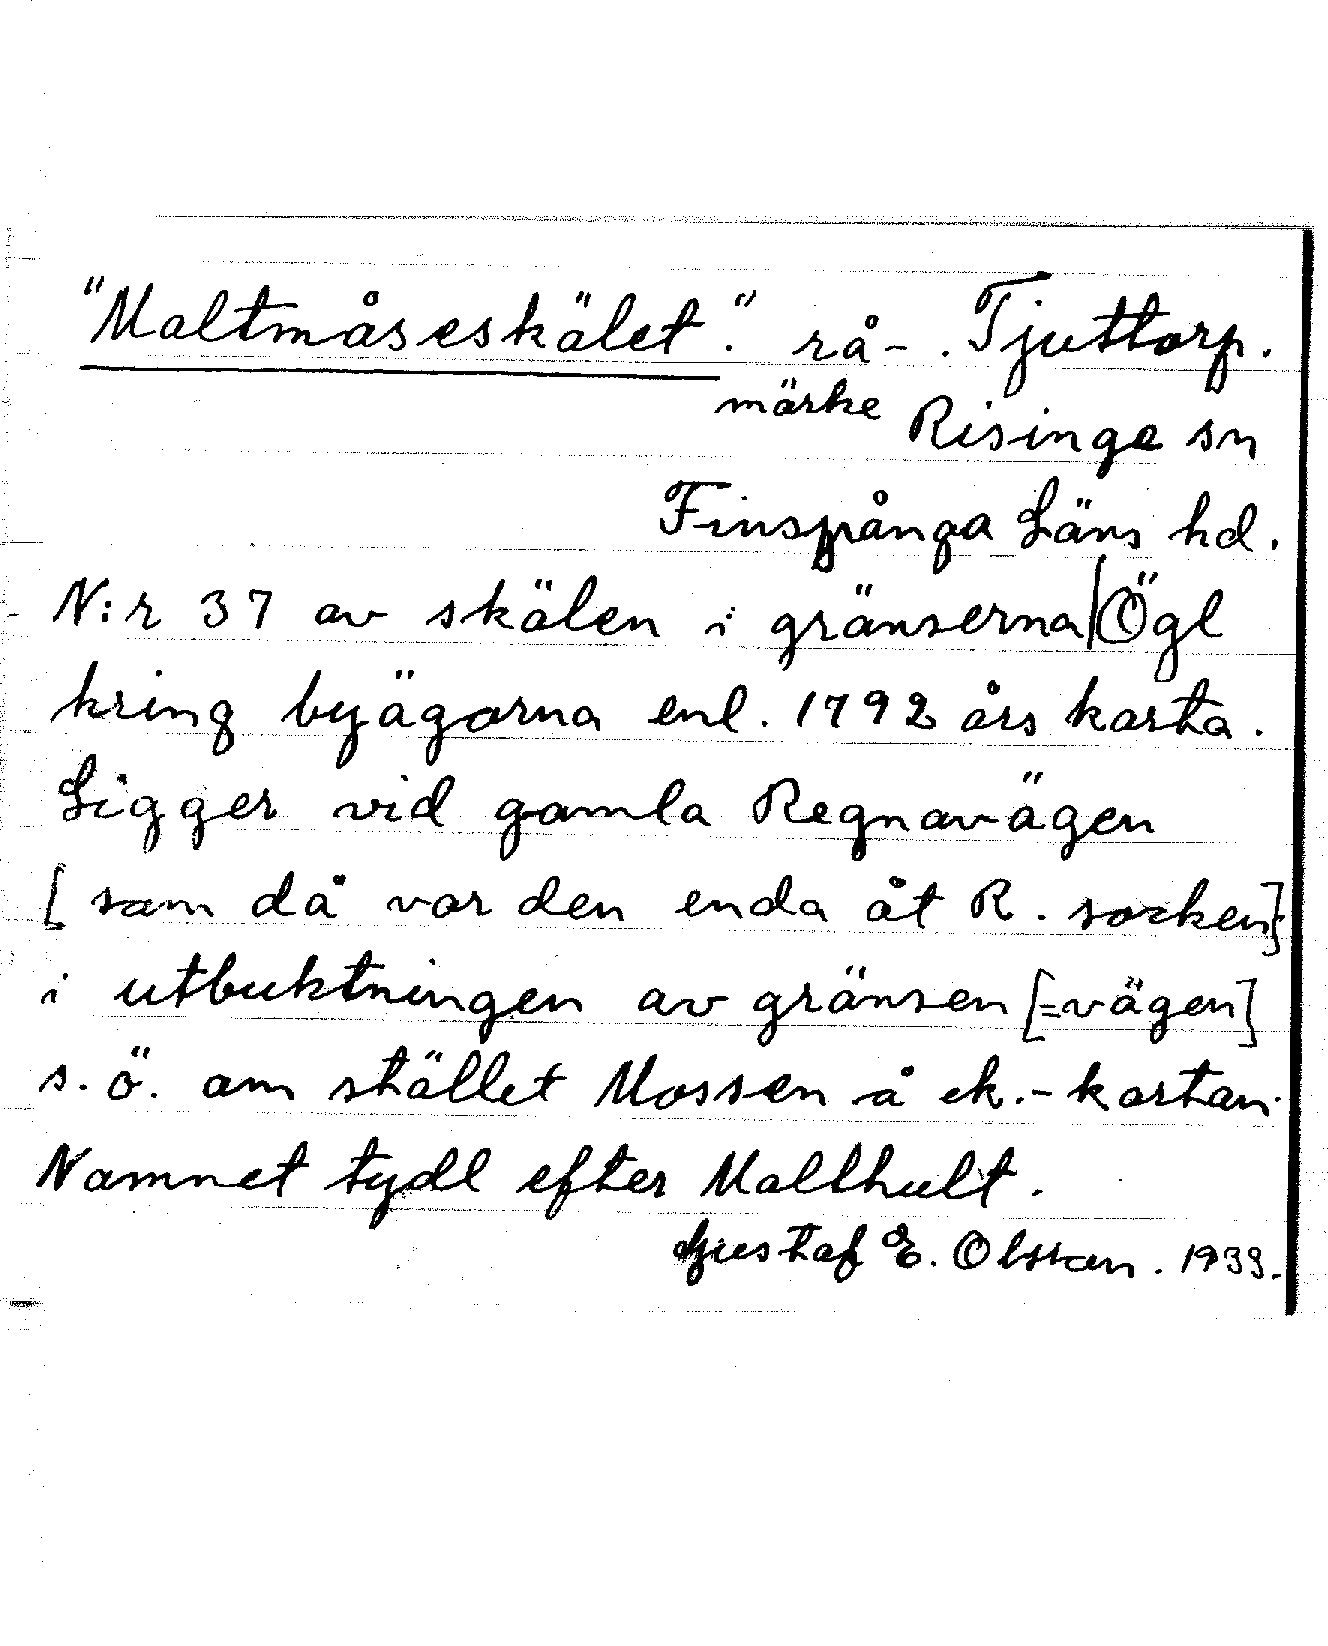 "Maltmåseskälet". rå- . Tjuttorp.
märke Risinge sn
Finspånga Läns hd.
N:r 37 av skälen i gränserna Ögl
kring byägorna enl. 1792 års karta.
Ligger vid gamla Regnavägen
[som då var den enda åt R. socken]
i utbuktningen av gränsen [=vägen]
s.ö. om stället Mossen å ek.-kartan.
Namnet tydl efter Mallhult.
Gustaf E. Olsson. 1933.